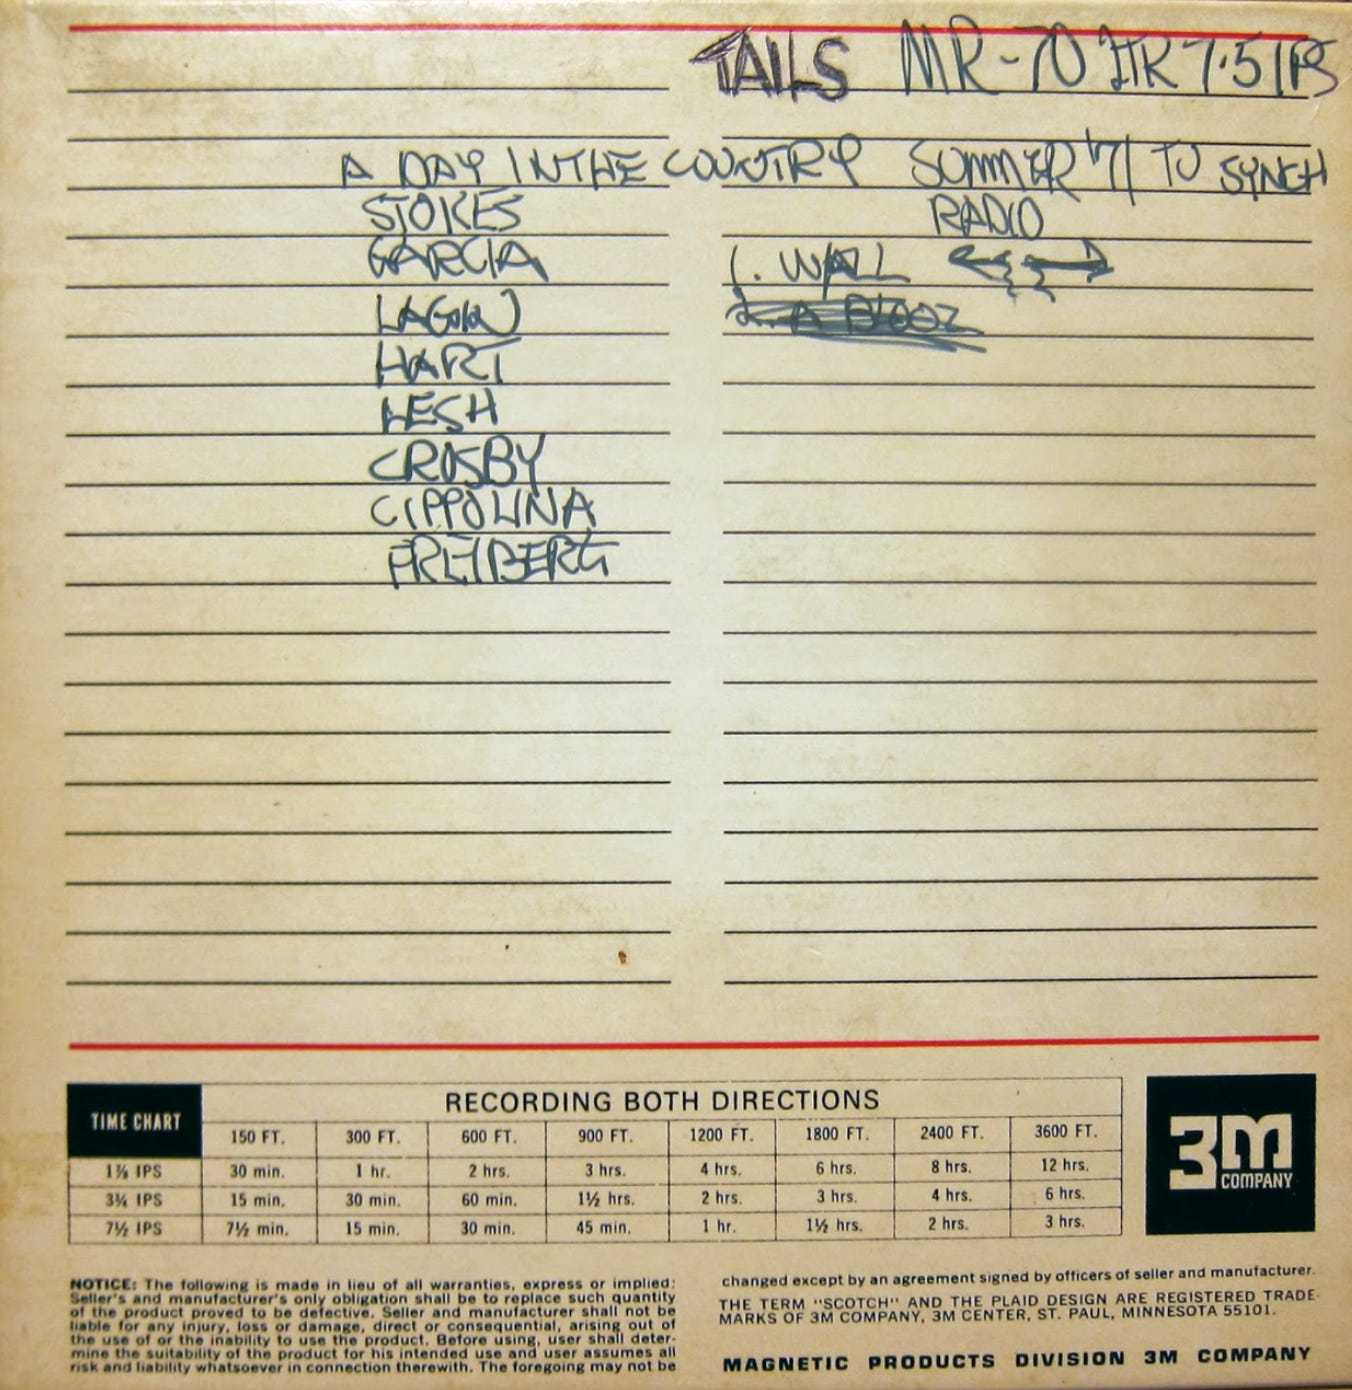 TAILS MR-70 2TK 7.5 IPS
A DAY IN THE COUNTRY SUMMER '71 TO SYNCH
STOKES RADIO
GARCIA 1. WALL
LAGIN 2. A BLOOZ
HART
LESH
CROSBY
CIPPOLINA
FREIBERG
TIME CHART
RECORDING BOTH DIRECTIONS
150 FT. 300 FT. 600 FT. 900 FT. 1200 FT. 1800 FT. 2400 FT. 3600 FT.
1⅞ IPS 30 min. 1 hr. 2 hrs. 3 hrs. 4 hrs. 6 hrs. 8 hrs. 12 hrs.
3¾ IPS 15 min. 30 min. 60 min. 1½ hrs. 2 hrs. 3 hrs. 4 hrs. 6 hrs.
7½ IPS 7½ min. 15 min. 30 min. 45 min. 1 hr. 1½ hrs. 2 hrs. 3 hrs.
3M
COMPANY
NOTICE: The following is made in lieu of all warranties, express or implied:
Seller's and manufacturer's only obligation shall be to replace such quantity
of the product proved to be defective. Seller and manufacturer shall not be
liable for any injury, loss or damage, direct or consequential, arising out of
the use of or the inability to use the product. Before using, user shall deter-
mine the suitability of the product for his intended use and user assumes all
risk and liability whatsoever in connection therewith. The foregoing may not be
changed except by an agreement signed by officers of seller and manufacturer.
THE TERM "SCOTCH" AND THE PLAID DESIGN ARE REGISTERED TRADE-
MARKS OF 3M COMPANY, 3M CENTER, ST. PAUL, MINNESOTA 55101.
MAGNETIC PRODUCTS DIVISION 3M COMPANY